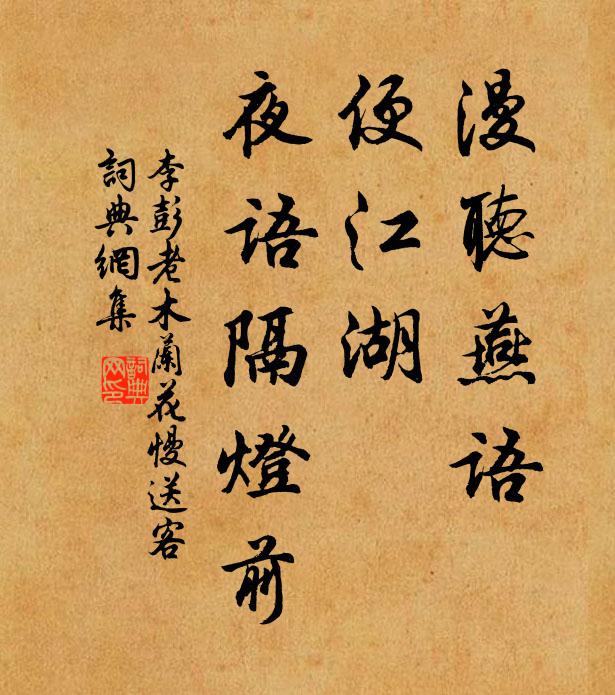 漫聽燕語
便江湖
夜語隔燈前
李彭老木蘭花慢送客
詞典網集
詞典
网印